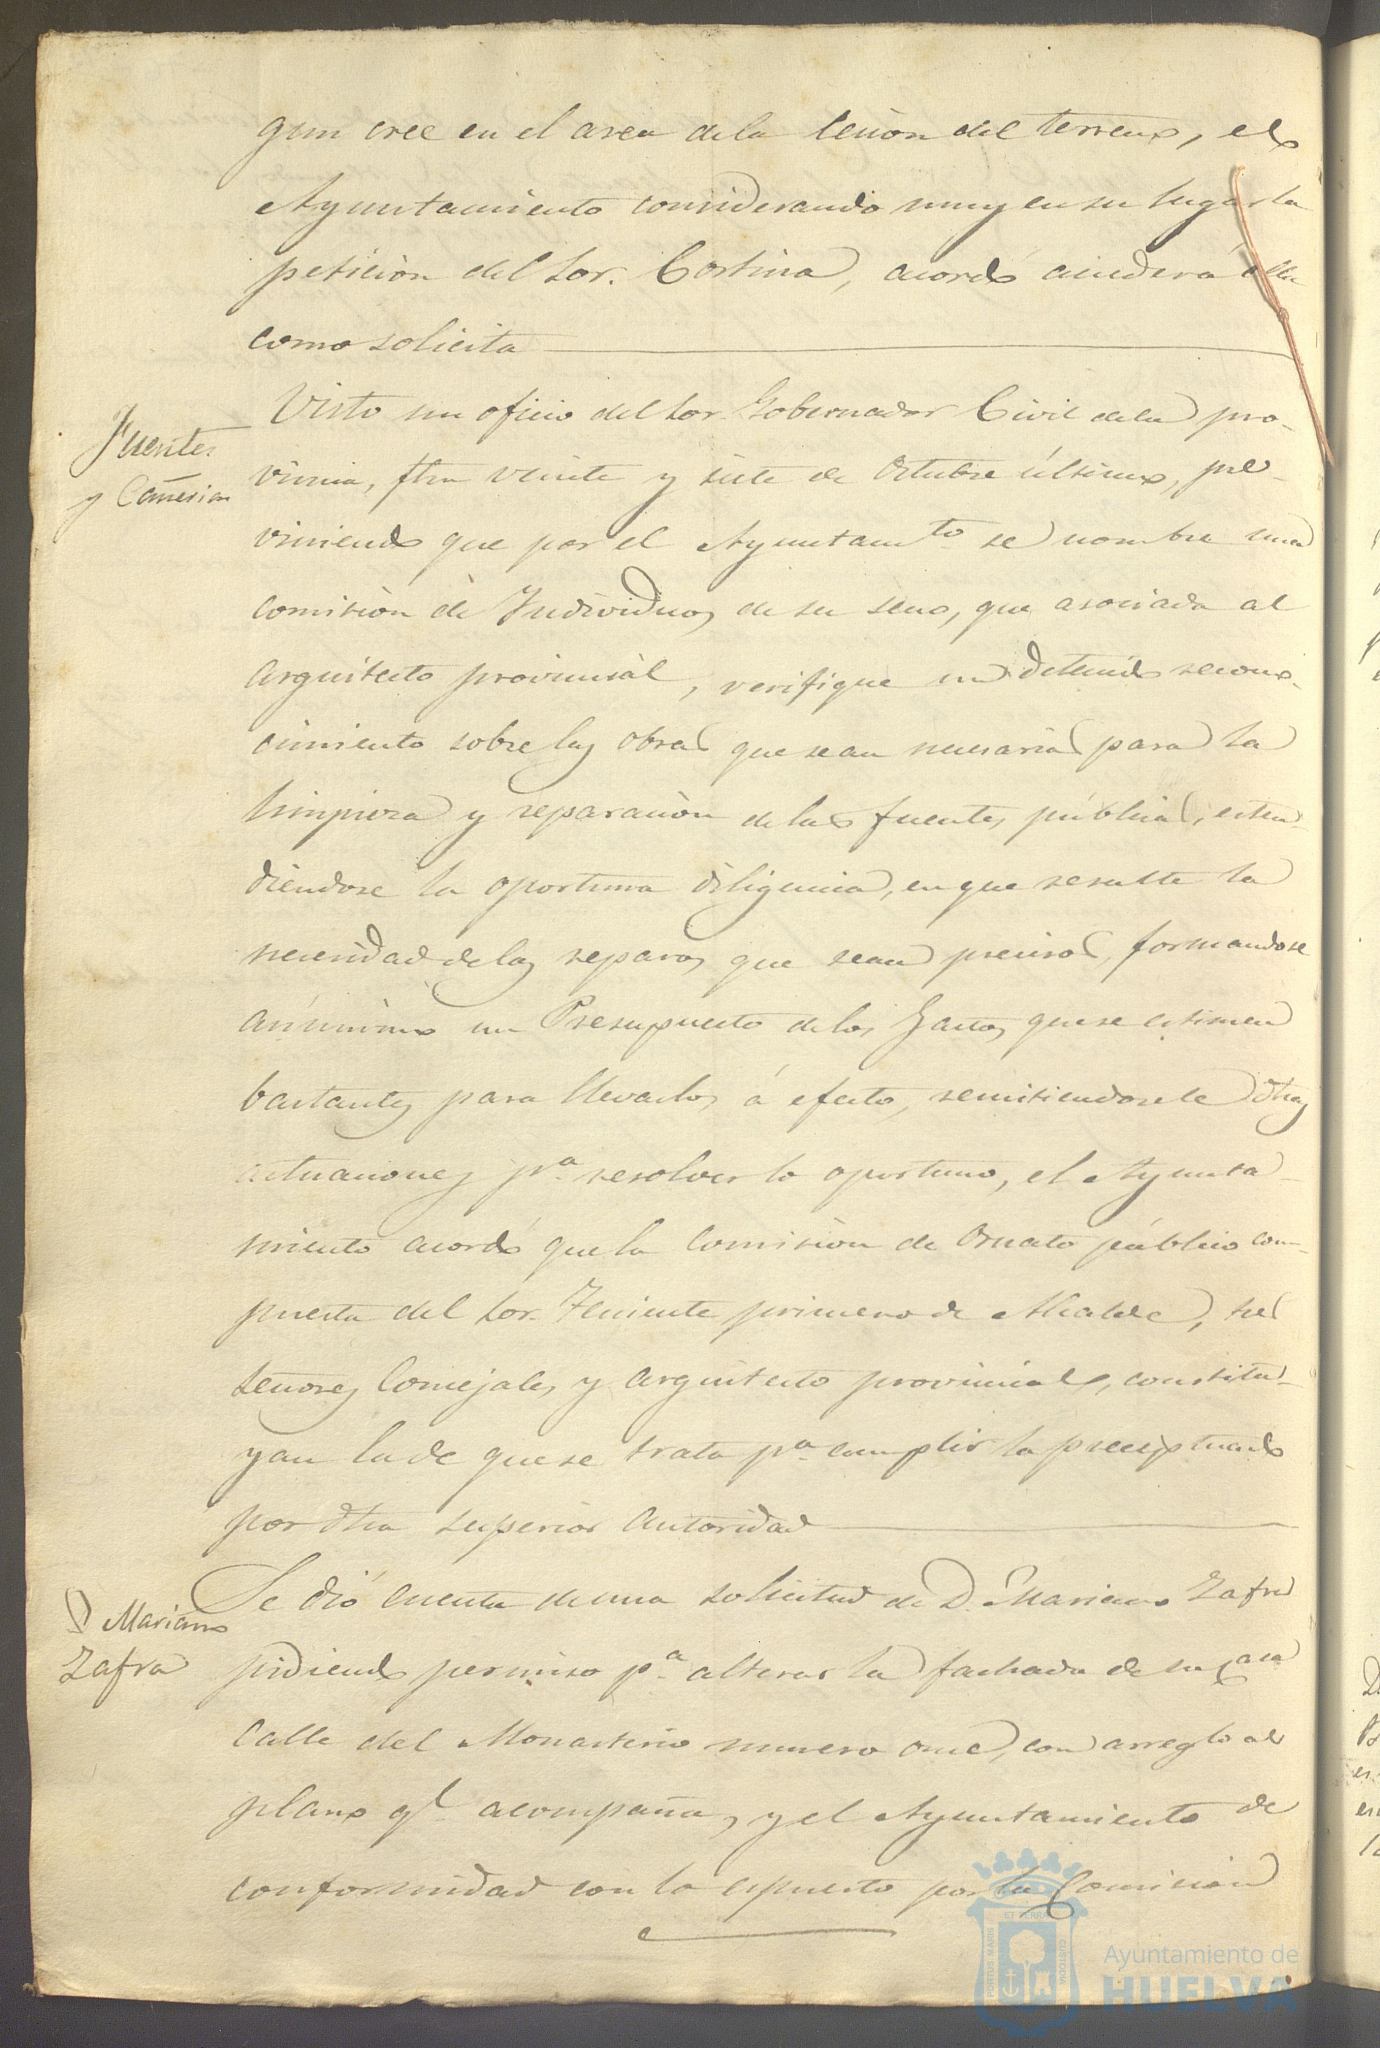 gun cree en el area dela cesion del terreno, el
Ayuntamiento considerando muy en su lugar la
peticion del Sor. Cortina, acordó acceder á ella
como solicita
Fuentes
y Cañerias
Visto un oficio del Sor. Gobernador Civil dela pro-
vincia, fha veinte y siete de Octubre último, pre-
viniendo que por el Ayuntamto se nombre una
comision de Individuos de su seno, que asociada al
arquitecto provincial, verifique un detenido recono-
cimiento sobre las obras que sean necesarias para la
limpieza y reparacion de las fuentes públicas, esten-
diendose la oportuna diligencia, en que resulte la
necesidad de los reparos que sean precisos, formandose
asimismo un Presupuesto de los gastos que se estimen
bastantes para llevarlos á efecto, remitiendosele dhas
actuaciones pa. resolver lo oportuno, el Ayunta-
miento acordó que la Comision de Ornato público com-
puesta del Sor. Teniente primero de Alcalde, tres
señores Concejales y arquitecto provincial, constitu-
yan la de que se trata pa cumplir lo preceptuado
por dha superior autoridad
D Mariano
Zafra
Se dió cuenta de una solicitud de D. Mariano Zafra
pidiendo permiso pa. alterar la fachada de su casa
Calle del Monasterio numero once, con arreglo al
plano qe acompaña, y el Ayuntamiento de
conformidad con lo espuesto por la Comision
PORTUS MARIS ET TERRAE CUSTODIA
Ayuntamiento de
HUELVA